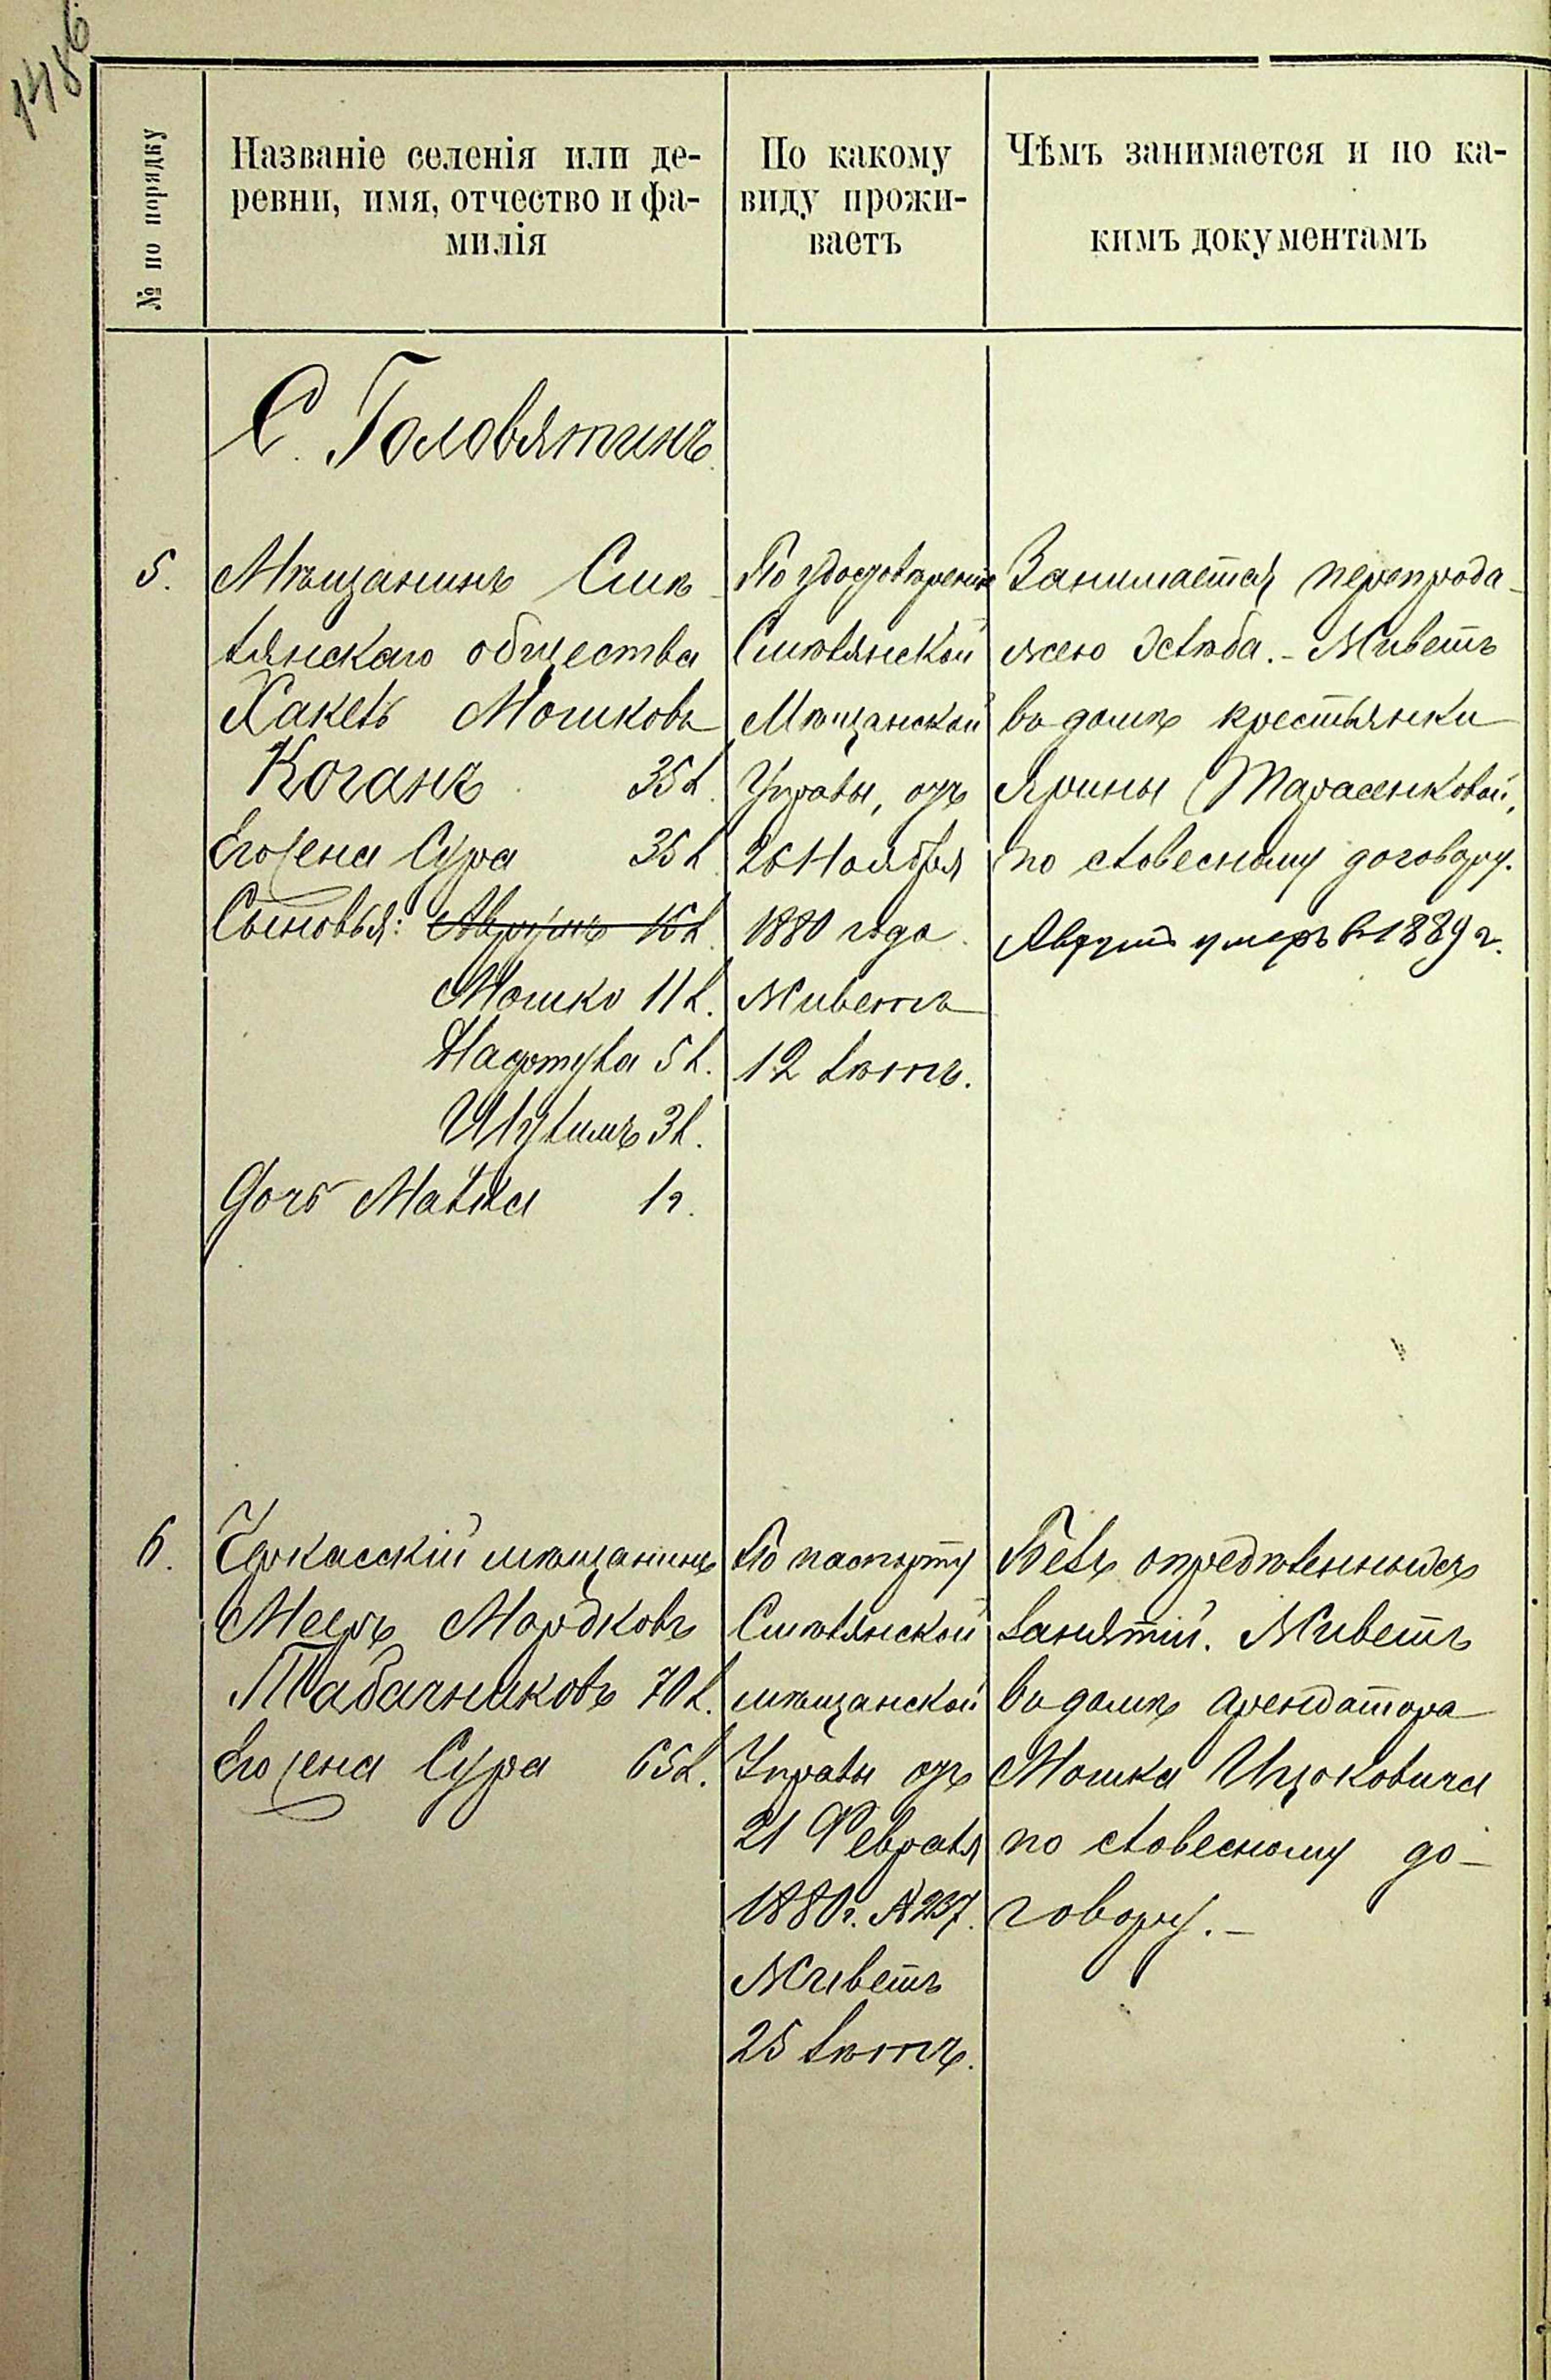 1486
№ по порядку
Названіе селенія или де-
ревни, имя, отчество и фа-
милія
По какому
виду прожи-
ваетъ
Чѣмъ занимается и по ка-
кимъ документамъ
С. Головятинъ
5.
Мѣщанинъ Смѣ-
лянскаго общества
Хакель Мошковъ
Коганъ 35 л.
Его жена Сура 35 л.
Сыновья: Аврумъ 16 л.
Мошко 11 л.
5 л.
3 л.
Дочь Малка 1 г.
По удостовѣренію
Смѣлянской
Мѣщанской
Управы, отъ
26 Ноября
1880 года.
Живетъ
12 лѣтъ.
Занимается перепрода-
жею хлѣба. – Живетъ
въ домѣ крестьянки
Ярины Тарасенковой,
по словесному договору.
Аврумъ умеръ в 1889 г.
6.
Черкасскій мѣщанинъ
Мееръ Мордковъ
Табачниковъ 70 л.
Его жена Сура 65 л.
По паспорту
Смѣлянской
мѣщанской
Управы отъ
21 Февраля
1880 г. № 237.
Живетъ
25 лѣтъ.
Безъ опредѣленныхъ
занятій. Живетъ
въ домѣ арендатора
Мошка Ицковича
по словесному до-
говору. –